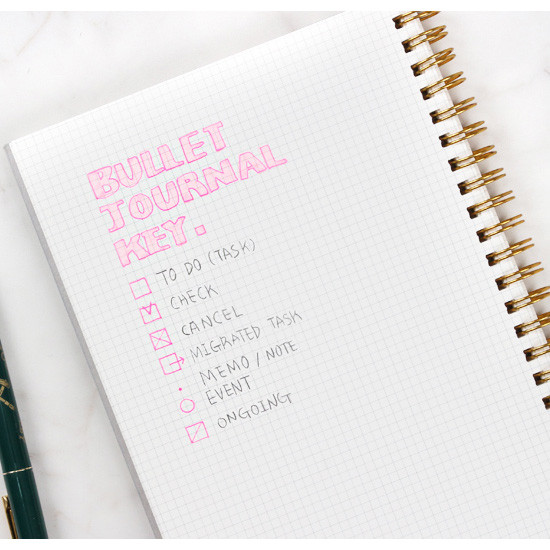 BULLET
JOURNAL
KEY.
TO DO (TASK)
CHECK
CANCEL
MIGRATED TASK
MEMO / NOTE
EVENT
ONGOING